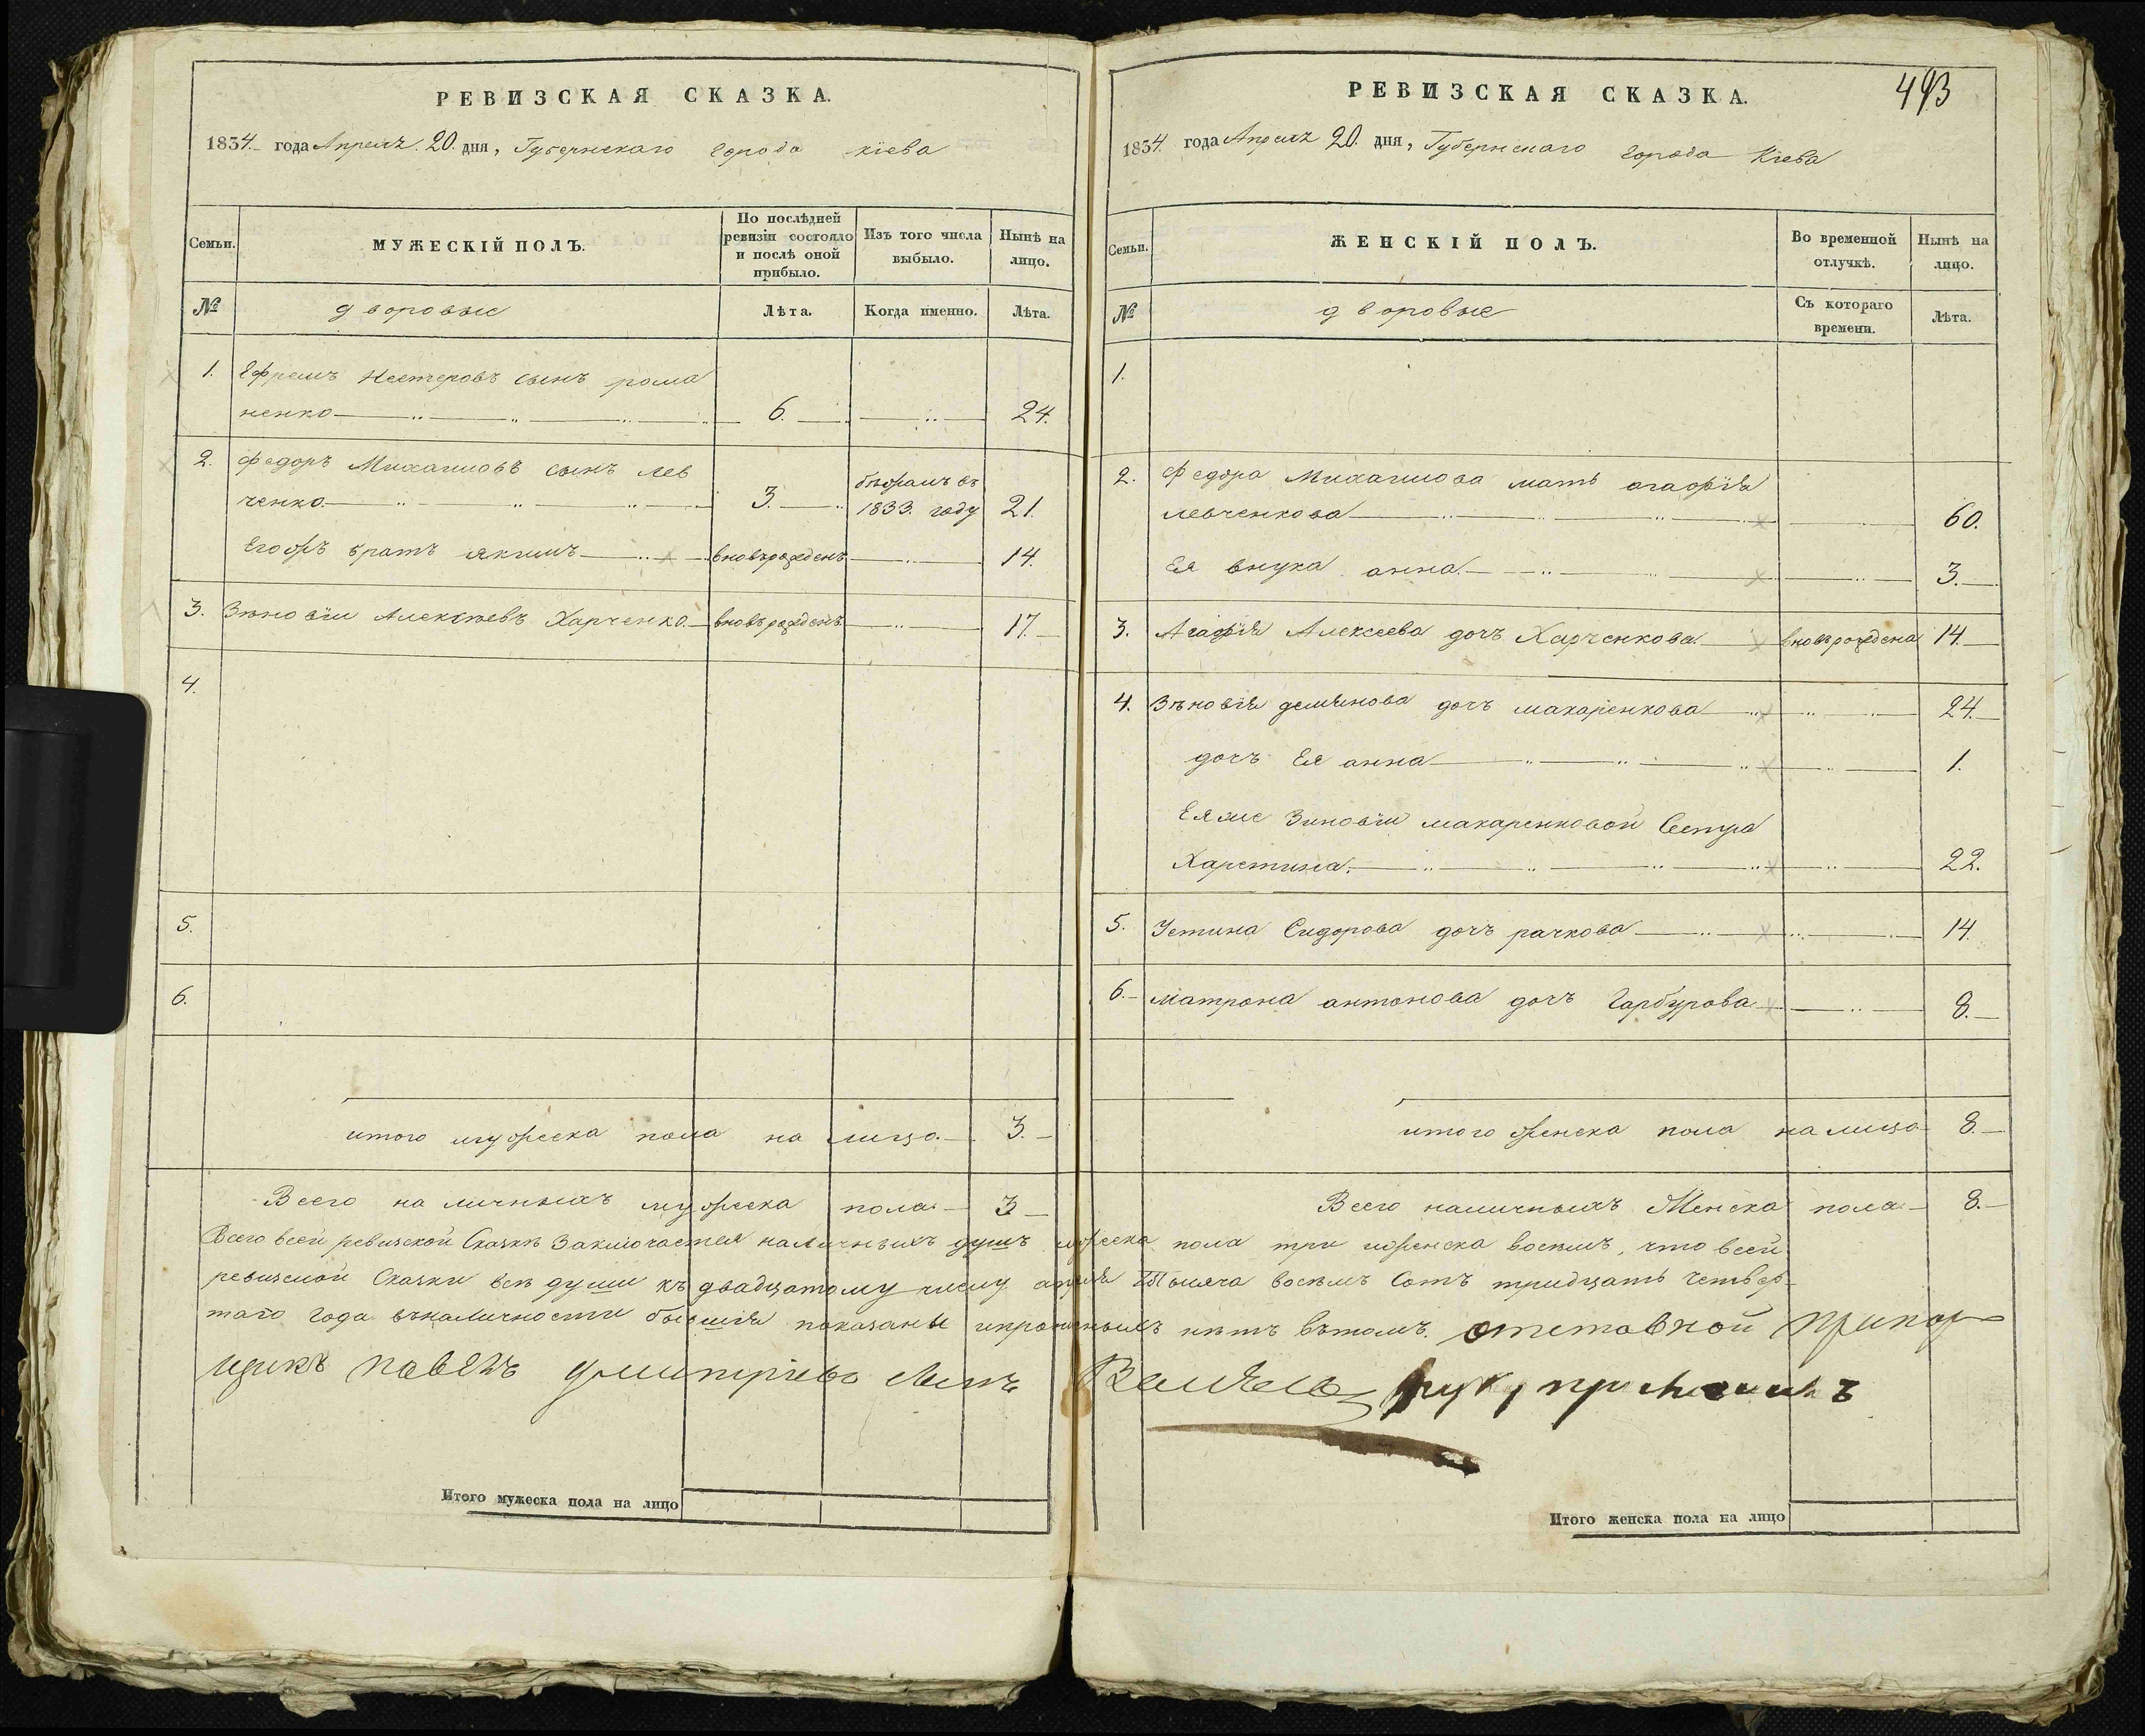 РЕВИЗСКАЯ СКАЗКА.
1834. года Апреля. 20. дня, Губернскаго города кіева
Семьи.
МУЖЕСКІЙ ПОЛЪ.
По послѣдней ревизіи состояло и послѣ оной прибыло.
Изъ того числа выбыло.
Нынѣ на лицо.
№
дворовые
Лѣта.
Когда именно.
Лѣта.
1. Ефремъ Нестеровъ сынъ рома
ненко 6. 24.
2. Федоръ Михаиловъ сынъ лев
ченко 3. бѣжалъ въ 1833. году 21.
Егожъ братъ якимъ вновърожденъ 14.
3. Зѣновіи Алексѣевъ Харченко вновърожденъ 17.
4.
5.
6.
итого мужеска пола на лицо. 3.
Всего на личныхъ мужеска пола 3
РЕВИЗСКАЯ СКАЗКА.
493
1834. года Апреля 20. дня, Губернскаго города Кіева
Семьи.
ЖЕНСКІЙ ПОЛЪ.
Во временной отлучкѣ.
Нынѣ на лицо.
№
дворовые
Съ котораго времени.
Лѣта.
1.
2. Федора Михаилова мать агафія
левченкова 60.
Ея внука анна 3.
3. Агафія Алексеева дочъ Харченкова вновърождена 14.
4. Зѣновія демянова дочъ макаренкова 24.
дочъ Ея анна 1.
Еяже Зиновіи макаренковой Сестра
Харетина. 22.
5. Устина Сидорова дочъ рачкова 14.
6. матрона антонова дочъ Гарбурова 8.
итого женска пола налицо 8.
Всего наличныхъ Женска пола 8.
Всего всей ревизской Сказкѣ Заключается наличныхъ душъ мужеска пола три иженска восемъ, что всей
ревизской Сказки всѣ души къ двадцатому числу апреля Тысяча восемъ Сотъ тридцать четвер-
таго года въналичности бывшія показаны ипрописныхъ нѣтъ вътомъ. отставной прапор
щикъ павелъ дмитріевъ сынъ руку приложилъ
Итого мужеска пола на лицо
Итого женска пола на лицо